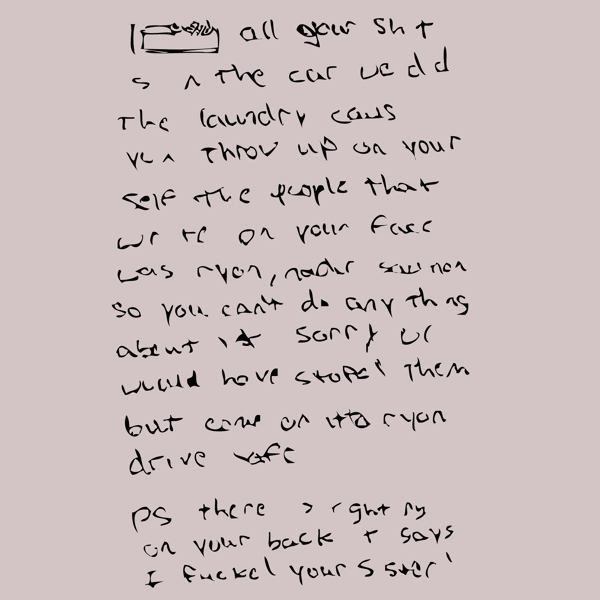 all your sh t
s n the car we dd
The laundry caus
you throw up on your
self the people that
wrte on your face
was ryan, nadir
so you can't do any thing
about it sorry we
would have stopped them
but come on its ryan
drive safe
PS there s right ng
on your back t says
I fucked your sster!